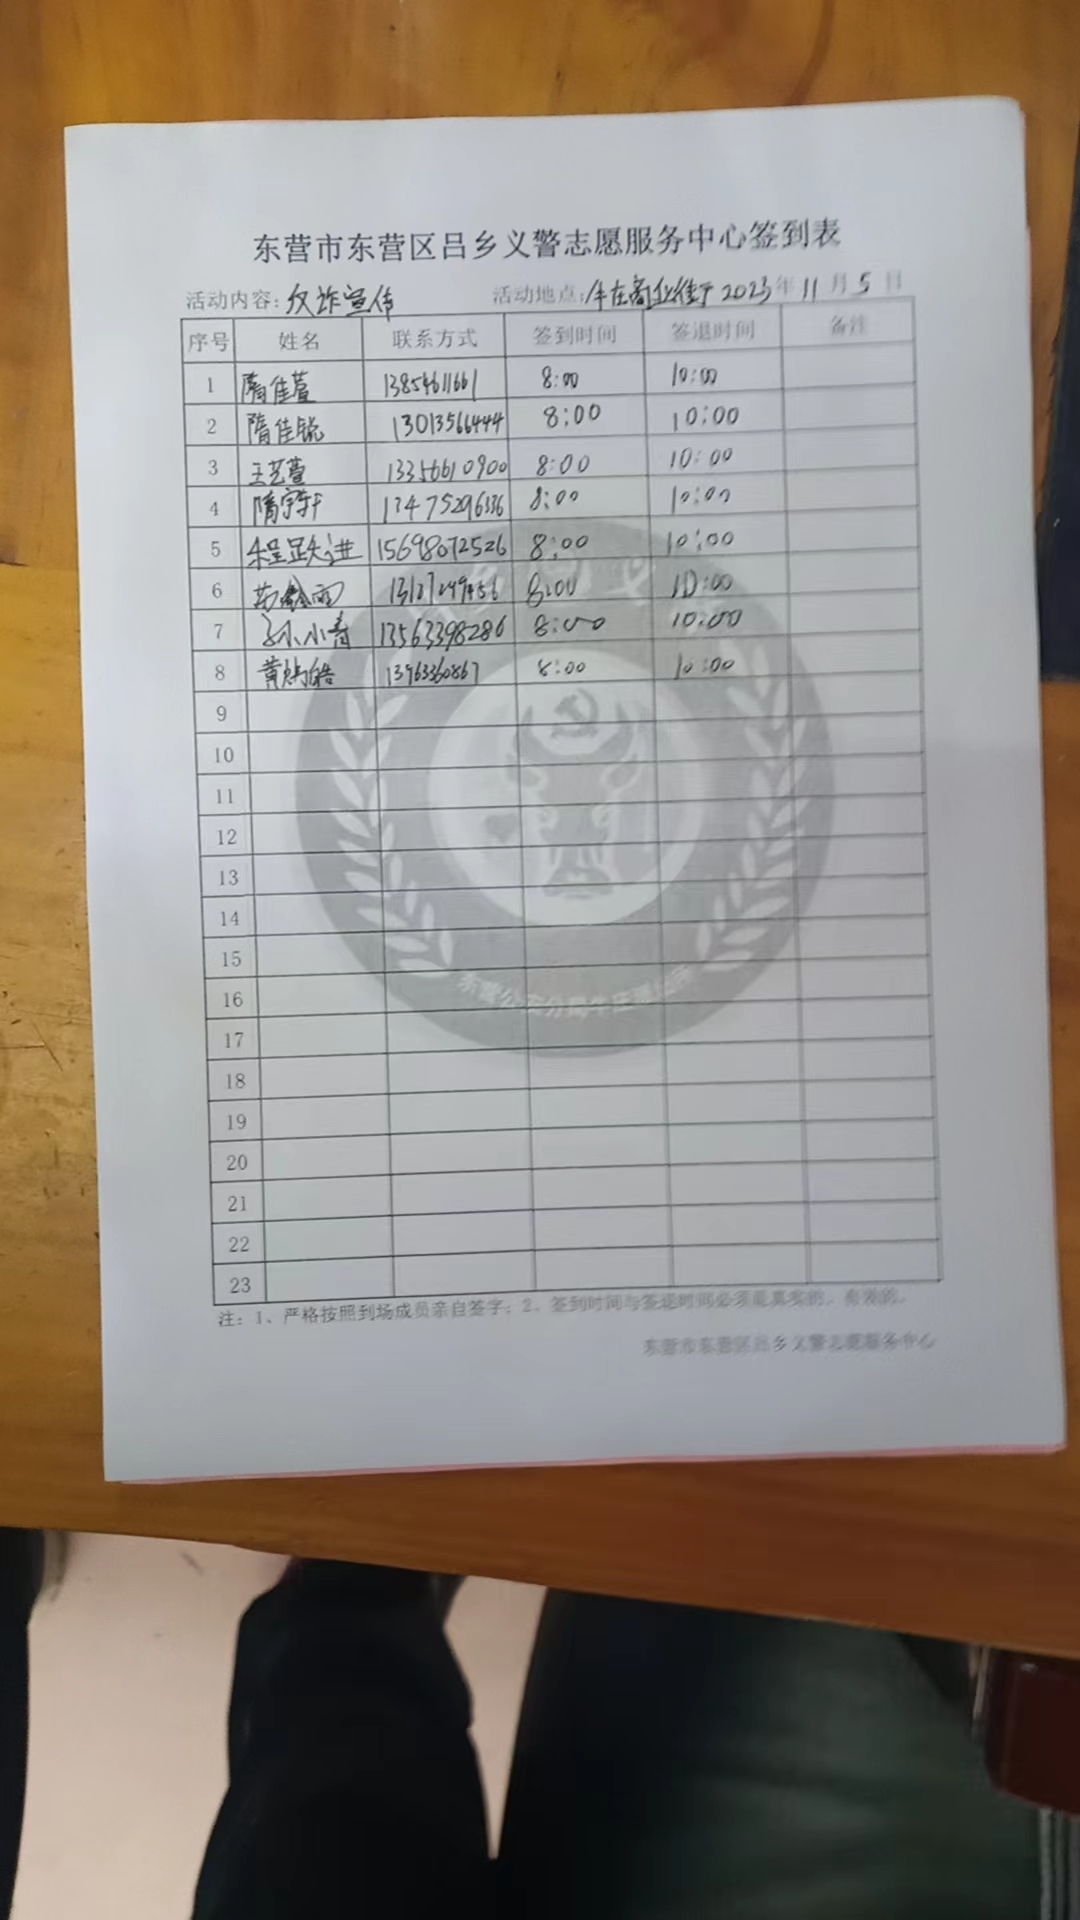 东营市东营区吕乡义警志愿服务中心签到表
活动内容:反诈宣传 活动地点:牛庄商业街 2023年11月5日
序号 姓名 联系方式 签到时间 签退时间 备注
1 隋佳萱 13854611661 8:00 10:00
2 隋佳锐 13013566444 8:00 10:00
3 王艺萱 13356610900 8:00 10:00
4 隋宇轩 13475296336 8:00 10:00
5 程跃进 15698072526 8:00 10:00
6 8:00 10:00
7 孙小青 13563398286 8:00 10:00
8 13963360867 8:00 10:00
9
10
11
12
13
14
15
16
17
18
19
20
21
22
23
东营公安分局牛庄派出所
注:1、严格按照到场成员亲自签字;2、签到时间与签退时间必须是真实的,有效的。
东营市东营区吕乡义警志愿服务中心